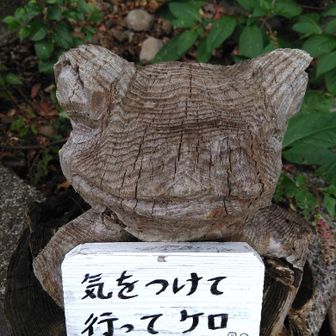 気をつけて
行ってケロ